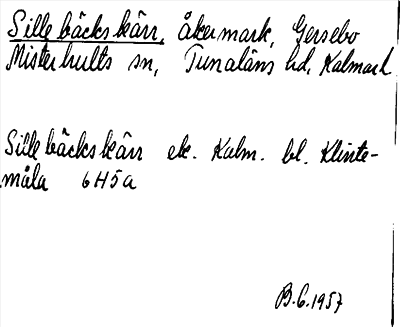 Sillebäckskärr, åkermark, Gersebo
Misterhults sn, Tunaläns hd, Kalmar l
Sillebäckskärr ek. Kalm. bl. Klinte-
måla 6H5a
B.G.1957